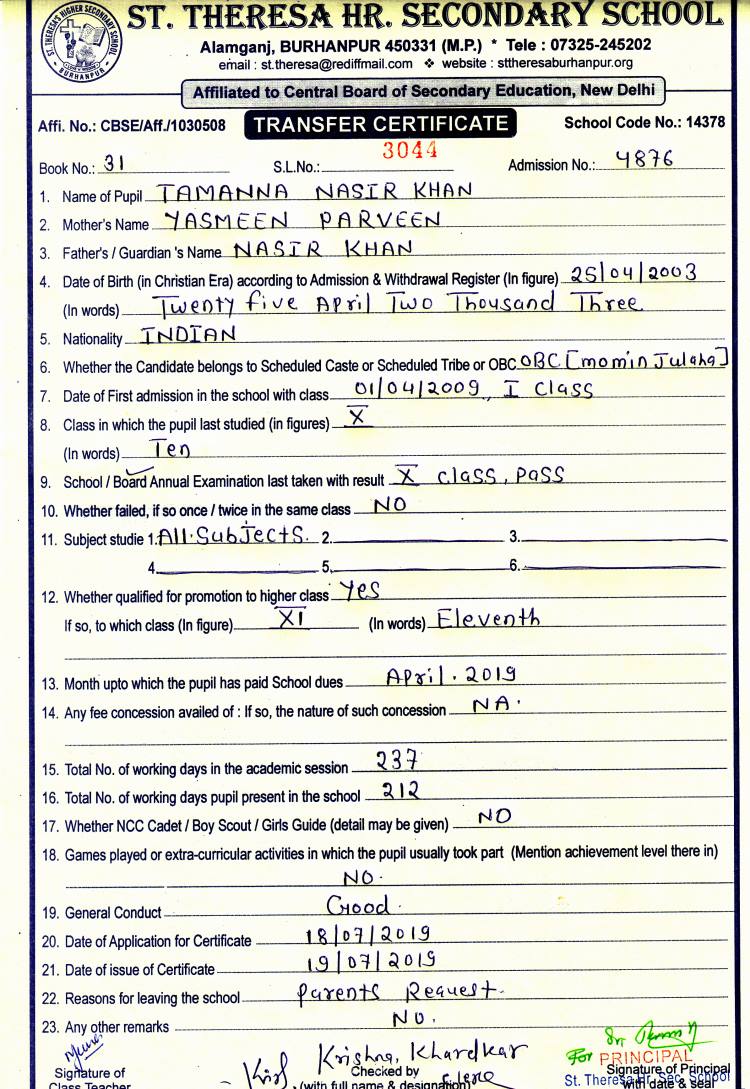 ST. THERESA'S HIGHER SECONDARY SCHOOL
BURHANPUR
ST. THERESA HR. SECONDARY SCHOOL
Alamganj, BURHANPUR 450331 (M.P.) * Tele : 07325-245202
email : st.theresa@rediffmail.com ❖ website : sttheresaburhanpur.org
Affiliated to Central Board of Secondary Education, New Delhi
Affi. No.: CBSE/Aff./1030508 TRANSFER CERTIFICATE School Code No.: 14378
Book No.: 31 S.L.No.: 3044 Admission No.: 4876
1. Name of Pupil TAMANNA NASIR KHAN
2. Mother's Name YASMEEN PARVEEN
3. Father's / Guardian 's Name NASIR KHAN
4. Date of Birth (in Christian Era) according to Admission & Withdrawal Register (In figure) 25/04/2003
(In words) Twenty five April Two Thousand Three
5. Nationality INDIAN
6. Whether the Candidate belongs to Scheduled Caste or Scheduled Tribe or OBC OBC [momin Julaha]
7. Date of First admission in the school with class 01/04/2009, I Class
8. Class in which the pupil last studied (in figures) X
(In words) Ten
9. School / Board Annual Examination last taken with result X class, pass
10. Whether failed, if so once / twice in the same class NO
11. Subject studie 1. All Subjects. 2. 3.
4. 5. 6.
12. Whether qualified for promotion to higher class Yes
If so, to which class (In figure) XI (In words) Eleventh
13. Month upto which the pupil has paid School dues April. 2019
14. Any fee concession availed of : If so, the nature of such concession NA.
15. Total No. of working days in the academic session 237
16. Total No. of working days pupil present in the school 212
17. Whether NCC Cadet / Boy Scout / Girls Guide (detail may be given) NO
18. Games played or extra-curricular activities in which the pupil usually took part (Mention achievement level there in)
NO.
19. General Conduct Good.
20. Date of Application for Certificate 18/07/2019
21. Date of issue of Certificate 19/07/2019
22. Reasons for leaving the school Parents Request.
23. Any other remarks NO.
Krishna, Khardkar
For PRINCIPAL
Signature of Checked by Signature of Principal
St. Theresa Hr. Sec. School
Class Teacher (with full name & designation) Clerk with date & seal